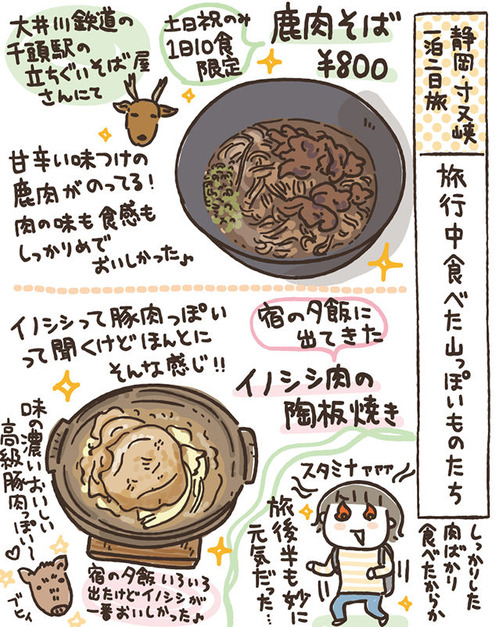 静岡・寸又峡
一泊二日旅
旅行中食べた山っぽいものたち
鹿肉そば
¥800
土日祝のみ
1日10食
限定
大井川鉄道の
千頭駅の
立ちぐいそば屋
さんにて
甘辛い味つけの
鹿肉がのってる!
肉の味も食感も
しっかりめで
おいしかった♪
宿の夕飯に
出てきた
イノシシ肉の
陶板焼き
イノシシって豚肉っぽい
って聞くけどほんとに
そんな感じ!!
味の濃いおいしい
高級豚肉っぽい〜♡
ブヒィ
宿の夕飯いろいろ
出たけどイノシシが
一番おいしかった♪
しっかりした
肉ばかり
食べたからか
スタミナァァァ
旅後半も妙に
元気だった…